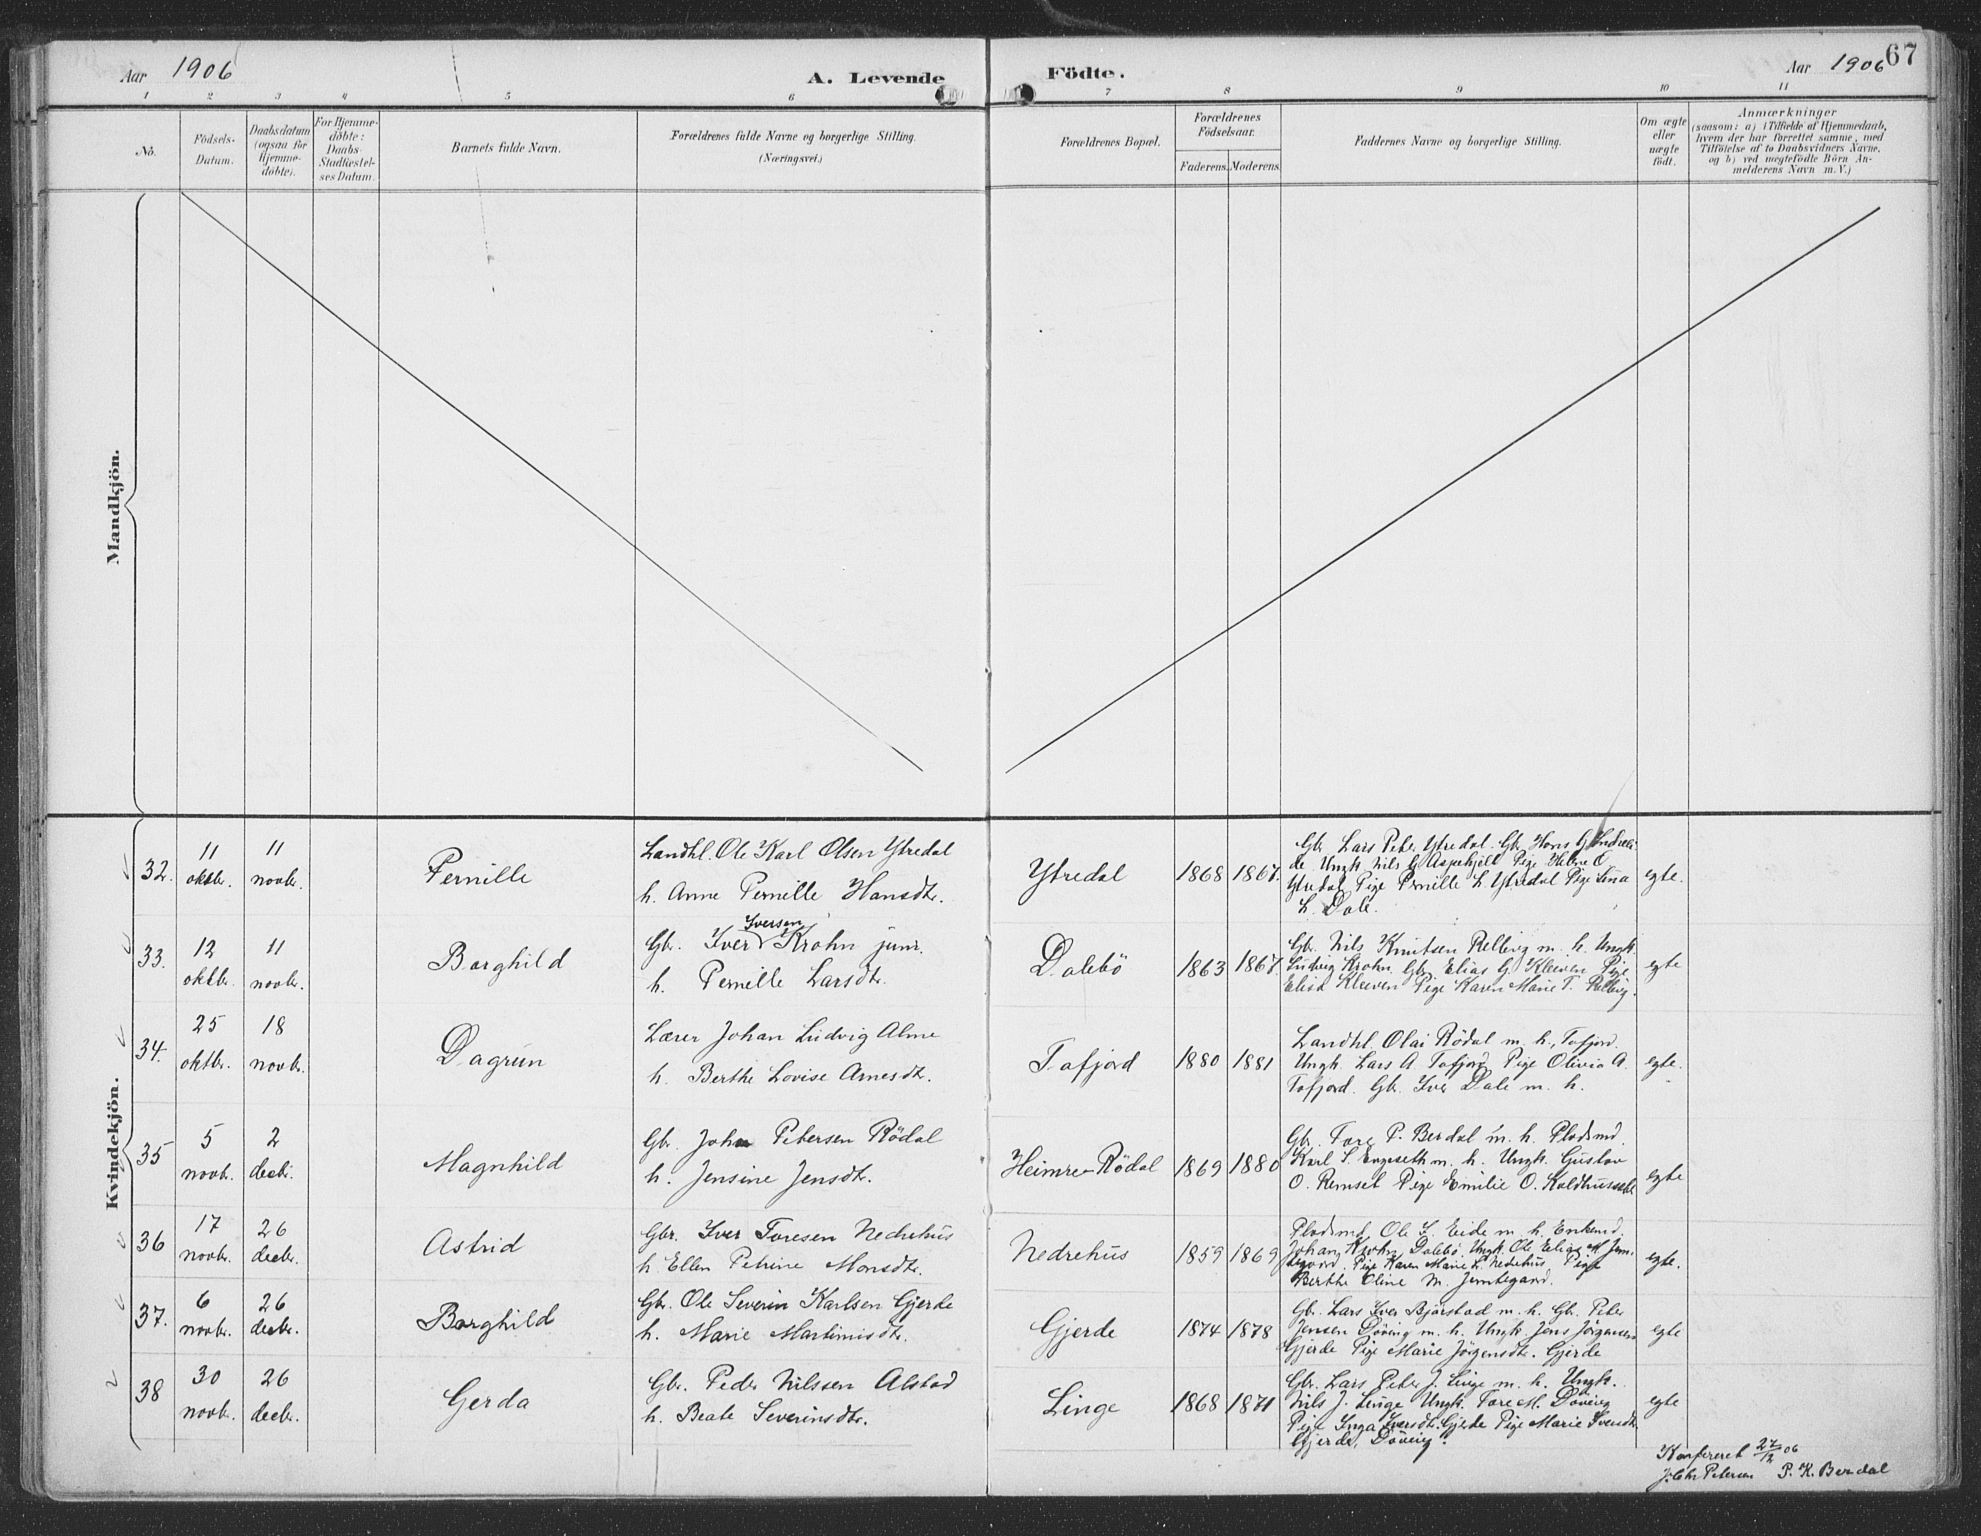 Aar 1906
A. Levende
Födte.
Aar 1906
67
1 2 3 4 5 6 7 8 9 10 11
No.
Födsels-
Datum.
Daabsdatum
(ogsaa for
Hjemme-
döbte).
For Hjemme-
döbte:
Daabs-
Stadfæstel-
ses Datum.
Barnets fulde Navn.
Forældrenes fulde Navne og borgerlige Stilling.
(Næringsvei.)
Forældrenes Bopæl.
Forældrenes
Födselsaar.
Faderens. Moderens.
Faddernes Navne og borgerlige Stilling.
Om ægte
eller
uægte
födt.
Anmærkninger
(saasom: a) i Tilfælde af Hjemmedaab,
hvem der har forrettet samme, med
Tilföielse af to Daabsvidners Navne,
og b) ved uægtefödte Börn An-
melderens Navn m. V.)
Mandkjön.
Kvindekjön.
32.
11
oktbr.
11
novbr.
Pernille
Landhl. Ole Karl Olsen Ytredal
h. Anne Pernille Hansdtr.
Ytredal
1868 1867.
Gbr. Lars Peter Ytredal. Gbr. Hans G.
de Ungk. Nils G. Aspehjell Pige Heline O.
Ytredal Pige Pernille L. Ytredal Pige Lina
L. Dale.
egte.
33.
12
oktbr.
11
novbr.
Borghild
Gbr. Iver Iversen Krohn junr.
h. Pernille Larsdtr.
Dalebö
1863 1867.
Gbr. Nils Knutsen Relling m. h. Ungk.
Ludvig Krohn. Gbr. Elias G. Kleiven Pige
Elisa Kleiven Pige Karen Marie T. Relling.
egte
34.
25
oktbr.
18
novbr.
Dagrun
Lærer Johan Ludvig Alme
h. Berthe Lovise Arnesdtr.
Tafjord
1880 1881
Landhl. Olai Rödal m. h., Tafjord.
Ungk. Lars A. Tafjord Pige Olivia A.
Tafjord. Gbr. Iver Dale m. h.
egte.
35
5
novbr.
2
decbr.
Magnhild
Gbr. John Petersen Rödal
h. Jensine Jensdtr.
Heimre-Rödal
1869 1880
Gbr. Tore P. Berdal m. h. Pladsmd.
Karl S. Engeseth m. h. Ungk. Gustav
O. Remset Pige Emilie O. Kaldhussæt
egte
36
17
novbr.
26
decbr.
Astrid
Gbr. Iver Toresen Nedrehus
h. Ellen Petrine Monsdtr.
Nedrehus
1859 1869
Pladsmd. Ole S. Eide m. h. Enkemd.
Johan Krohn Dalebö. Ungk. Ole Elias M. Jem-
tegaard. Pige Karen Marie L. Nedrehus Pige
Berthe Oline M. Jemtegaard.
egte.
37.
6
novbr.
26
decbr.
Borghild
Gbr. Ole Severin Karlsen Gjerde
h. Marie Martinusdtr.
Gjerde
1874 1878
Gbr. Lars Iver Bjørstad m. h. Gbr. Peter
Jensen Döving m. h. Ungk. Jens Jörgensen
Gjerde Pige Marie Jörgensdtr. Gjerde
egte
38
30
novbr.
26
decbr.
Gerda
Gbr. Peder Nilssen Alstad
h. Beate Severinsdtr.
Linge
1868 1871
Gbr. Lars Peter J. Linge m. h. Ungk.
Nils J. Linge Ungk. Tore M. Döving
Pige Inga Iversdtr. Gjerde Pige Marie Svendtr.
Gjerde, Döving.
egte
Konfereret 27/12 06
J. Chr Petersen P. K. Berdal